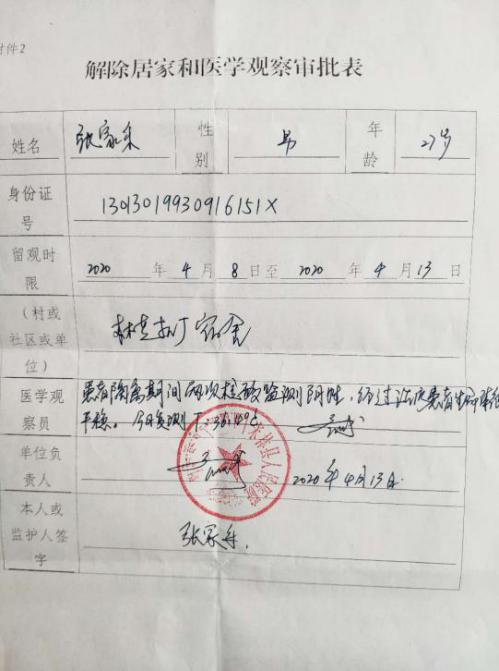 附件2
解除居家和医学观察审批表
姓名 张家乐 性别 男 年龄 27岁
身份证号 13013019930916151X
留观时限 2020年4月8日至2020年4月13日
(村或社区或单位) 宿舍
医学观察员 患者隔离期间两次核酸监测阴性,经过治疗患者生命体征
平稳。今日复测T:36.4℃
单位负责人 2020年4月13日
本人或监护人签字 张家乐.
县人民医院